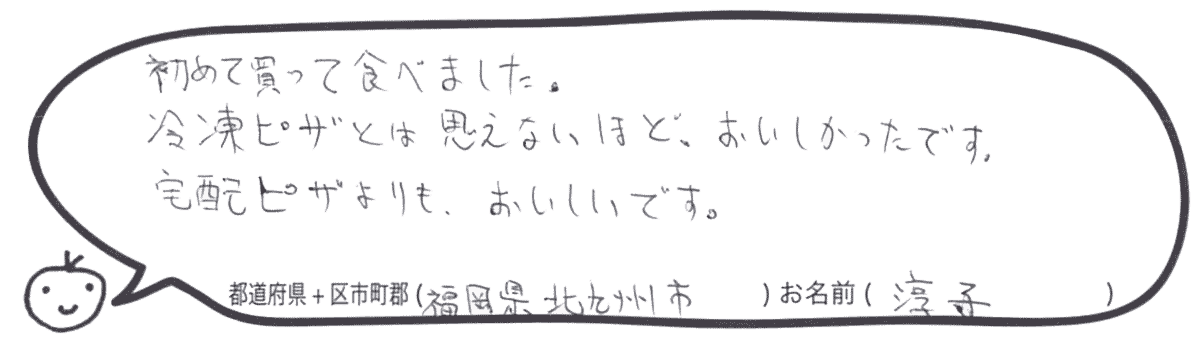 初めて買って食べました。
冷凍ピザとは思えないほど、おいしかったです。
宅配ピザよりも、おいしいです。
都道府県+区市町郡(福岡県北九州市)お名前(淳子)